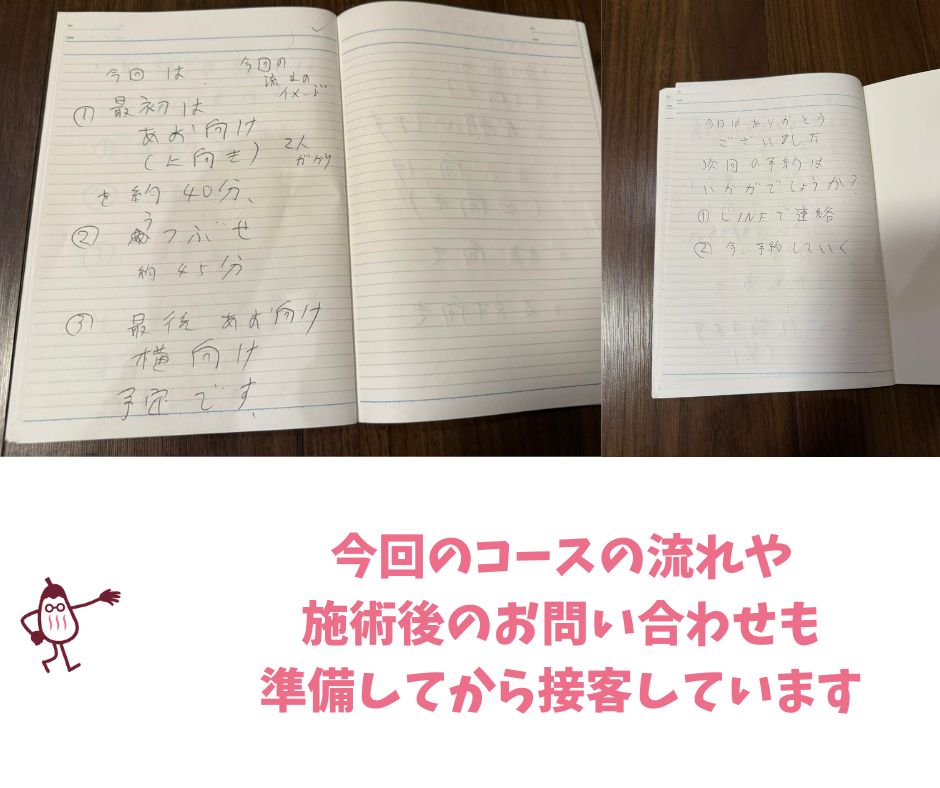 今回は
今回の
流れの
イメージ
① 最初は
あお向け
(上向き)
2人
がかり
を約40分、
② うつぶせ
約45分
③ 最後 あお向け
横向け
予定です。
今日はありがとう
ございました
次回の予約は
いかがでしょうか?
① LINEで連絡
② 今、予約していく
今回のコースの流れや
施術後のお問い合わせも
準備してから接客しています